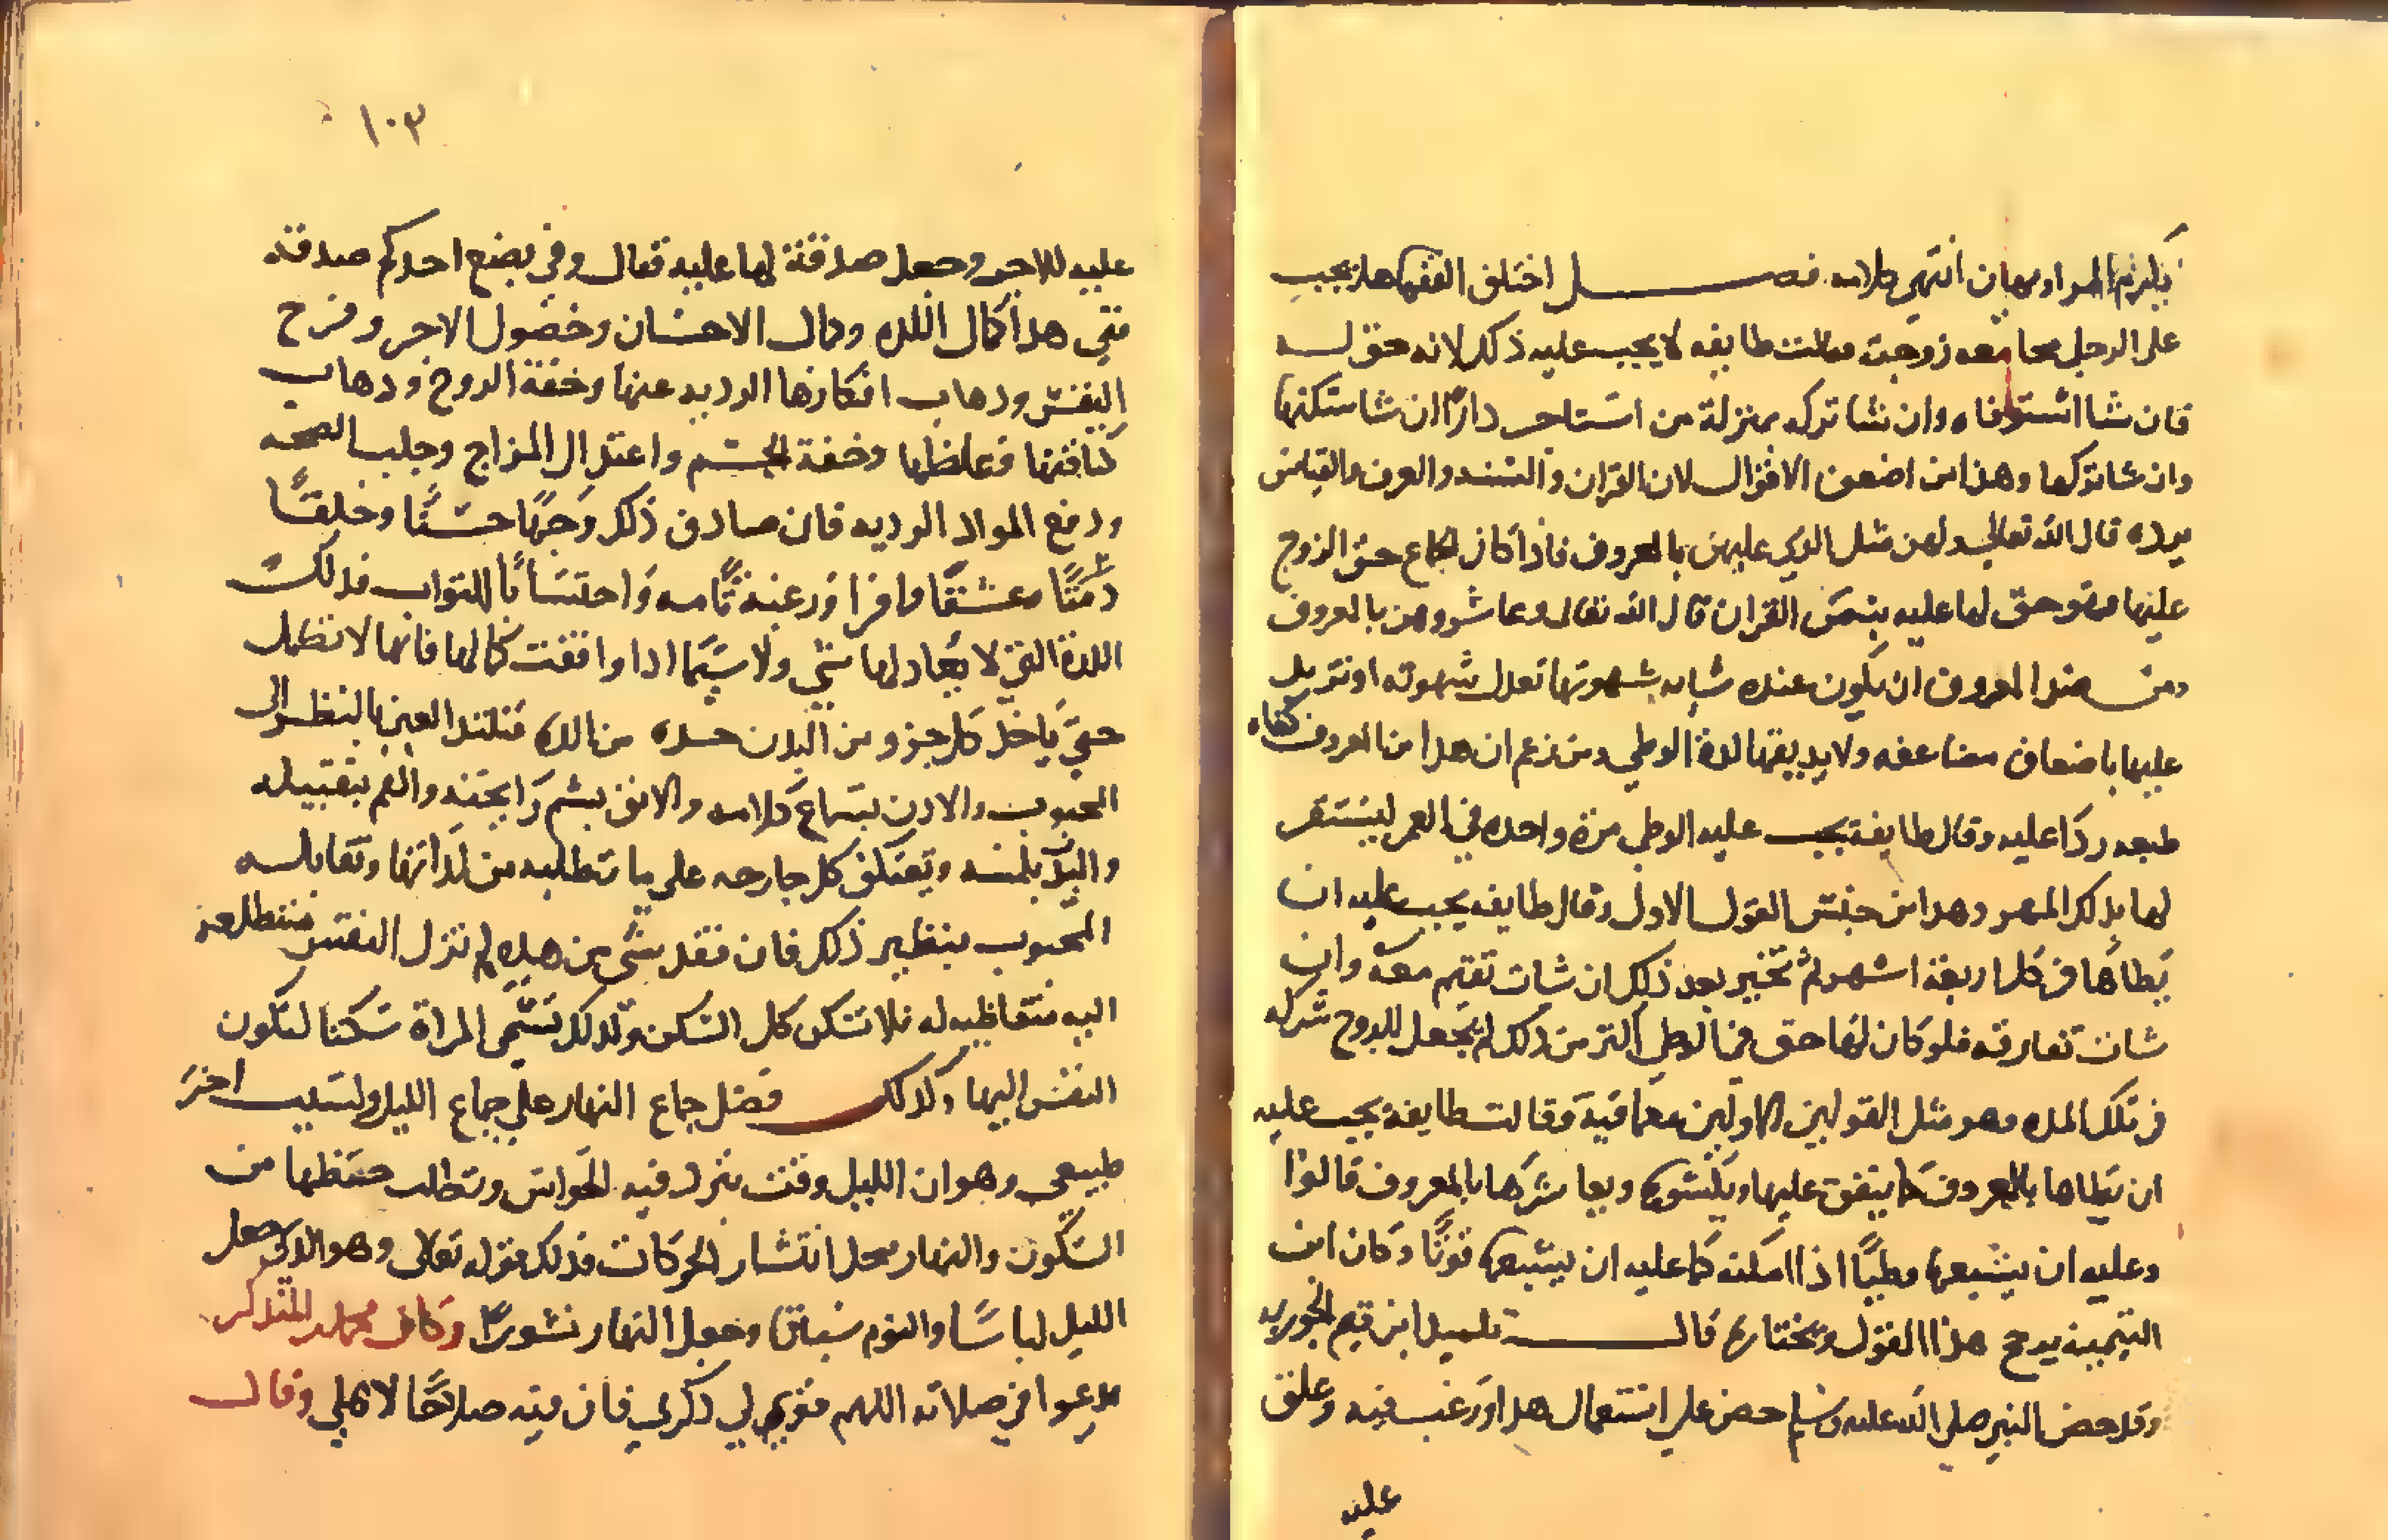 يكرثها المراد بهما من انتهى كلامه فصل اختلف الفقها هل يجب
على الرجل مجامعه زوجته فقالت طايفه لا يجب عليه ذلك لانه حق له
فان شا استوفاه وان شا تركه بمنزلة من استاجر دارًا ان شا سكنها
وان شا تركها وهذا من اضعف الاقوال لان القران والسنه والعرف والقياس
يرده قال الله تعالى ولهن مثل الذي عليهن بالمعروف فاذا كان الجماع حق الزوج
عليها فهو حق لها عليه بنص القران قال الله تعالى وعاشروهن بالمعروف
ومن ضد المعروف ان يكون عنده شابه شهوتها تعدل شهوته او تزيد
عليها باضعاف مضاعفه ولا يذيقها لذة الوطي ومن زعم ان هذا من المعروف كفاه
طبعه ردا عليه وقال طايفة يجب عليه الوطي مرة واحده في العمر ليستقر
لها بذلك المهر وهذا من جنس القول الاول وقال طايفه يجب عليه ان
يطاها في كل اربعة اشهر ثم تخير بعد ذلك ان شات تقيم معه وان
شات تفارقه فلو كان لها حق في الوطي اكثر من ذلك لم يجعل للزوج تركه
في تلك المده وهو مثل القولين الاولين عما فيه وقالت طايفة يجب عليه
ان يطاها بالمعروف كما ينفق عليها ويكسوها ويعاشرها بالمعروف قالوا
وعليه ان يشبعها وطيًا اذا امكنه كما عليه ان يشبعها قوتًا وكان ابن
التيميه يرجح هذا القول ويختاره قال تلميذ ابن قيم الجوزيه
وقد حض النبي صلى الله عليه وسلم حض على استعمال هذا ورغب فيه وعلق
عليه
١٠٣
عليه للاجر وجعل صدقة لها عليه فقال وفي بضع احدكم صدقه
ففي هذا كمال اللذه وكمال الاحسان وحصول الاجر وفرح
النفس وذهاب افكارها الرديه عنها وخفة الروح وذهاب
كثافتها وغلظها وخفة الجسم واعتدال المزاج وجلب الصحه
ودفع المواد الرديه فان صادف ذلك وجهًا حسنًا وخلقًا
دمثًا وعشقًا وافرا ورغبة تامه واحتسابًا للثواب فذلك
اللذة التي لا يعادلها شي ولا سيما اذا وافقت كمالها فانها لا تكمل
حتى ياخذ كل جزو من البدن حظه من اللذه فتلتذ العين بالنظر الى
المحبوب والاذن بسماع كلامه والانف بشم رايحته والفم بتقبيله
واليد بلمسه وتعتكف كل جارحه على ما تطلبه من لذاتها وتقابله
المحبوب بنظير ذلك فان فقد شي من هذه لم تزل النفس متطلعه
اليه متقاضيه له فلا تسكن كل السكن ولذلك تسمى المراة سكنا لسكون
النفس اليها وكذلك فضل جماع النهار على جماع الليل ولسبب اخر
طبيعي وهو ان الليل وقت تبرد فيه الحواس وتطلب حفظها من
السكون والنهار محل انتشار الحركات فذلك قوله تعالى وهو الذي جعل
الليل لباسًا والنوم سباتا وجعل النهار نشورًا وكان محمد المنكدر
يدعوا في صلاته اللهم قوي لي ذكري فان فيه صلاحًا لاهلي وقال